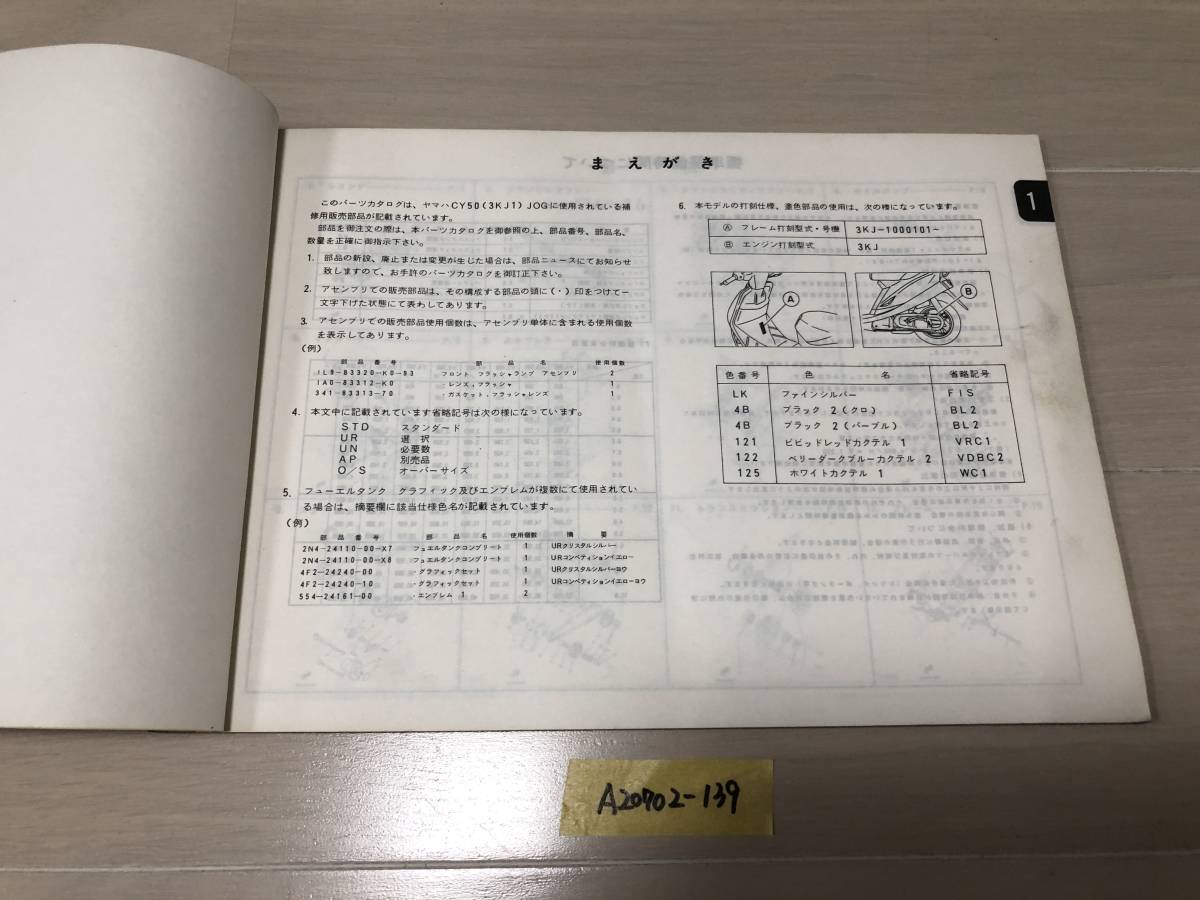 まえがき
1
このパーツカタログは、ヤマハCY50(3KJ1)JOGに使用されている補
修用販売部品が記載されています。
部品を御注文の際は、本パーツカタログを御参照の上、部品番号、部品名、
数量を正確に御指示下さい。
1. 部品の新設、廃止または変更が生じた場合は、部品ニュースにてお知らせ
致しますので、お手許のパーツカタログを御訂正下さい。
2. アセンブリでの販売部品は、その構成する部品の頭に(・)印をつけて一
文字下げた状態にて表わしてあります。
3. アセンブリでの販売部品使用個数は、アセンブリ単体に含まれる使用個数
を表示してあります。
(例)
部品番号 部品名 使用個数
1L9-83320-K0-93 フロント フラッシャランプ アセンブリ 2
1A0-83312-K0 ・レンズ,フラッシャ 1
341-83313-70 ・ガスケット,フラッシャレンズ 1
4. 本文中に記載されています省略記号は次の様になっています。
STD スタンダード
UR 選択
UN 必要数
AP 別売品
O/S オーバーサイズ
5. フューエルタンク グラフィック及びエンブレムが複数にて使用されてい
る場合は、摘要欄に該当仕様色名が記載されています。
(例)
部品番号 部品名 使用個数 摘要
2N4-24110-00-X7 フュエルタンクコンプリート 1 URクリスタルシルバー
2N4-24110-00-X8 フュエルタンクコンプリート 1 URコンペティションイエロー
4F2-24240-00 ・グラフィックセット 1 URクリスタルシルバーヨウ
4F2-24240-10 ・グラフィックセット 1 URコンペティションイエローヨウ
554-24161-00 ・エンブレム 1 2
6. 本モデルの打刻仕様、塗色部品の使用は、次の様になっています。
Ⓐ フレーム打刻型式・号機 3KJ-1000101~
Ⓑ エンジン打刻型式 3KJ
A
B
色番号 色名 省略記号
LK ファインシルバー FIS
4B ブラック 2(クロ) BL2
4B ブラック 2(パープル) BL2
121 ビビッドレッドカクテル 1 VRC1
122 ベリーダークブルーカクテル 2 VDBC2
125 ホワイトカクテル 1 WC1
A20702-139